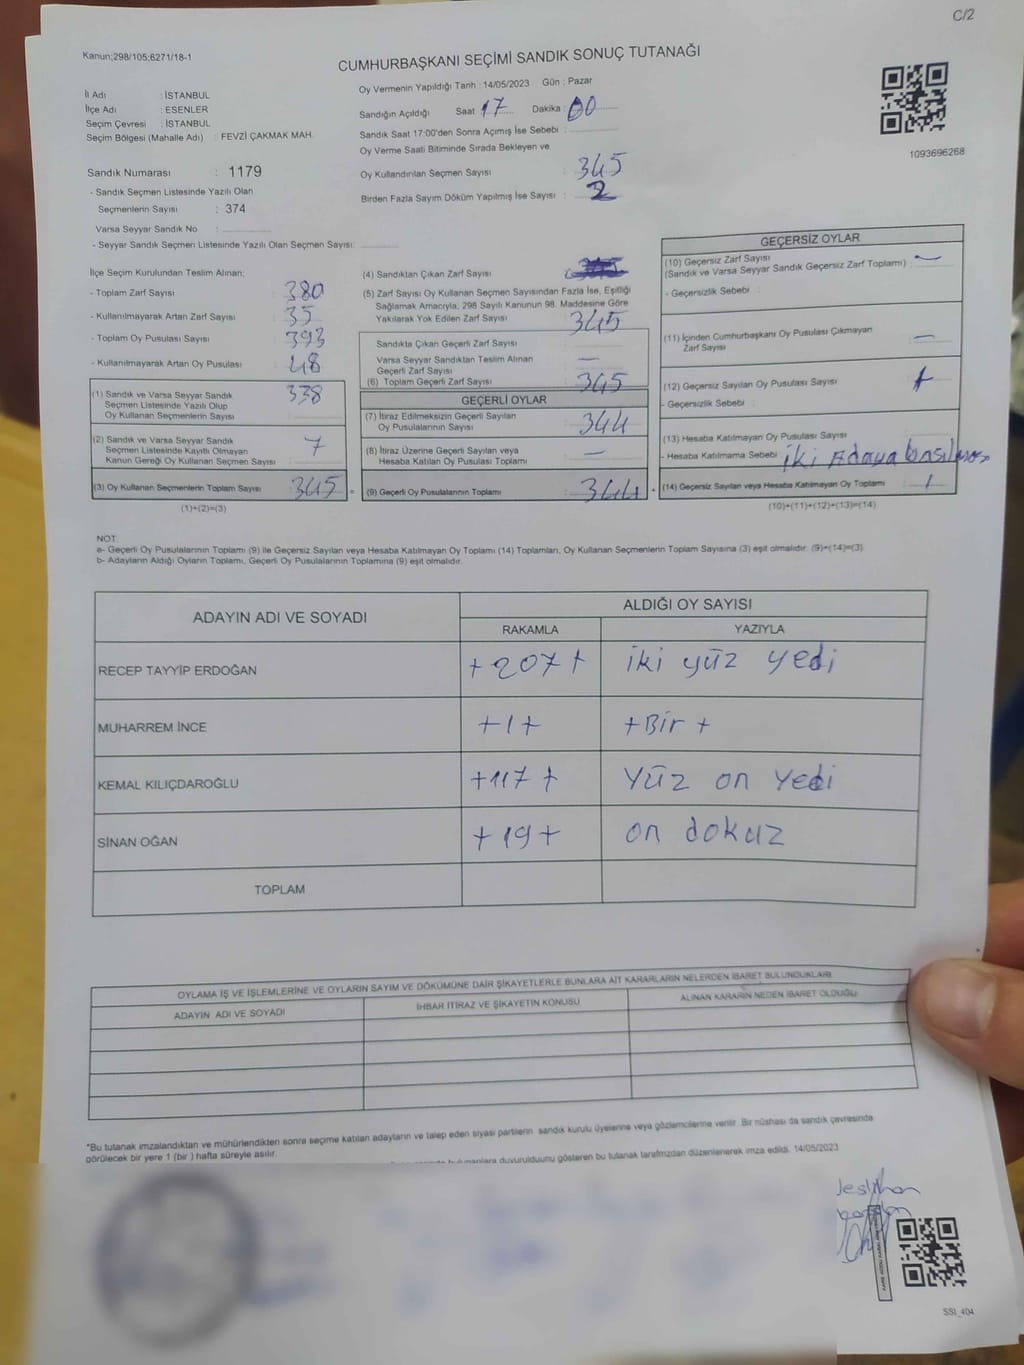 C/2
Kanun;298/105;6271/18-1
CUMHURBAŞKANI SEÇİMİ SANDIK SONUÇ TUTANAĞI
İl Adı : İSTANBUL
İlçe Adı : ESENLER
Seçim Çevresi : İSTANBUL
Seçim Bölgesi (Mahalle Adı) : FEVZİ ÇAKMAK MAH.
Sandık Numarası : 1179
- Sandık Seçmen Listesinde Yazılı Olan
Seçmenlerin Sayısı : 374
Varsa Seyyar Sandık No :
- Seyyar Sandık Seçmen Listesinde Yazılı Olan Seçmen Sayısı:
Oy Vermenin Yapıldığı Tarih : 14/05/2023 Gün : Pazar
Sandığın Açıldığı Saat : 17 Dakika : 00
Sandık Saat 17:00'den Sonra Açımış İse Sebebi :
Oy Verme Saati Bitiminde Sırada Bekleyen ve
Oy Kullandırılan Seçmen Sayısı : 345
Birden Fazla Sayım Döküm Yapılmış İse Sayısı : 2
1093696268
İlçe Seçim Kurulundan Teslim Alınan;
- Toplam Zarf Sayısı : 380
- Kullanılmayarak Artan Zarf Sayısı : 35
- Toplam Oy Pusulası Sayısı : 393
- Kullanılmayarak Artan Oy Pusulası : 48
(1) Sandık ve Varsa Seyyar Sandık
Seçmen Listesinde Yazılı Olup
Oy Kullanan Seçmenlerin Sayısı : 338
(2) Sandık ve Varsa Seyyar Sandık
Seçmen Listesinde Kayıtlı Olmayan
Kanun Gereği Oy Kullanan Seçmen Sayısı : 7
(3) Oy Kullanan Seçmenlerin Toplam Sayısı : 345 =
(1)+(2)=(3)
(4) Sandıktan Çıkan Zarf Sayısı :
(5) Zarf Sayısı Oy Kullanan Seçmen Sayısından Fazla İse, Eşitliği
Sağlamak Amacıyla; 298 Sayılı Kanunun 98. Maddesine Göre
Yakılarak Yok Edilen Zarf Sayısı : 345
Sandıkta Çıkan Geçerli Zarf Sayısı :
Varsa Seyyar Sandıktan Teslim Alınan
Geçerli Zarf Sayısı : —
(6) Toplam Geçerli Zarf Sayısı : 345
GEÇERLİ OYLAR
(7) İtiraz Edilmeksizin Geçerli Sayılan
Oy Pusulalarının Sayısı : 344
(8) İtiraz Üzerine Geçerli Sayılan veya
Hesaba Katılan Oy Pusulaları Toplamı : —
(9) Geçerli Oy Pusulalarının Toplamı : 344 +
GEÇERSİZ OYLAR
(10) Geçersiz Zarf Sayısı
(Sandık ve Varsa Seyyar Sandık Geçersiz Zarf Toplamı) : —
- Geçersizlik Sebebi :
(11) İçinden Cumhurbaşkanı Oy Pusulası Çıkmayan
Zarf Sayısı : —
(12) Geçersiz Sayılan Oy Pusulası Sayısı :
- Geçersizlik Sebebi :
(13) Hesaba Katılmayan Oy Pusulası Sayısı :
- Hesaba Katılmama Sebebi : iki Adaya
(14) Geçersiz Sayılan veya Hesaba Katılmayan Oy Toplamı : 1
(10)+(11)+(12)+(13)=(14)
NOT:
a- Geçerli Oy Pusulalarının Toplamı (9) ile Geçersiz Sayılan veya Hesaba Katılmayan Oy Toplamı (14) Toplamları, Oy Kullanan Seçmenlerin Toplam Sayısına (3) eşit olmalıdır. (9)+(14)=(3)
b- Adayların Aldığı Oyların Toplamı, Geçerli Oy Pusulalarının Toplamına (9) eşit olmalıdır.
ADAYIN ADI VE SOYADI
ALDIĞI OY SAYISI
RAKAMLA YAZIYLA
RECEP TAYYİP ERDOĞAN +207+ iki yüz yedi
MUHARREM İNCE +1+ +Bir+
KEMAL KILIÇDAROĞLU +117+ Yüz on Yedi
SİNAN OĞAN +19+ on dokuz
TOPLAM
OYLAMA İŞ VE İŞLEMLERİNE VE OYLARIN SAYIM VE DÖKÜMÜNE DAİR ŞİKAYETLERLE BUNLARA AİT KARARLARIN NELERDEN İBARET BULUNDUKLARI
ADAYIN ADI VE SOYADI İHBAR İTİRAZ VE ŞİKAYETİN KONUSU ALINAN KARARIN NEDEN İBARET OLDUĞU
*Bu tutanak imzalandıktan ve mühürlendikten sonra seçime katılan adayların ve talep eden siyasi partilerin sandık kurulu üyelerine veya gözlemcilerine verilir. Bir nüshası da sandık çevresinde
görülecek bir yere 1 (bir ) hafta süreyle asılır.
duyurulduğunu gösteren bu tutanak tarafımızdan düzenlenerek imza edildi. 14/05/2023
SSI_404